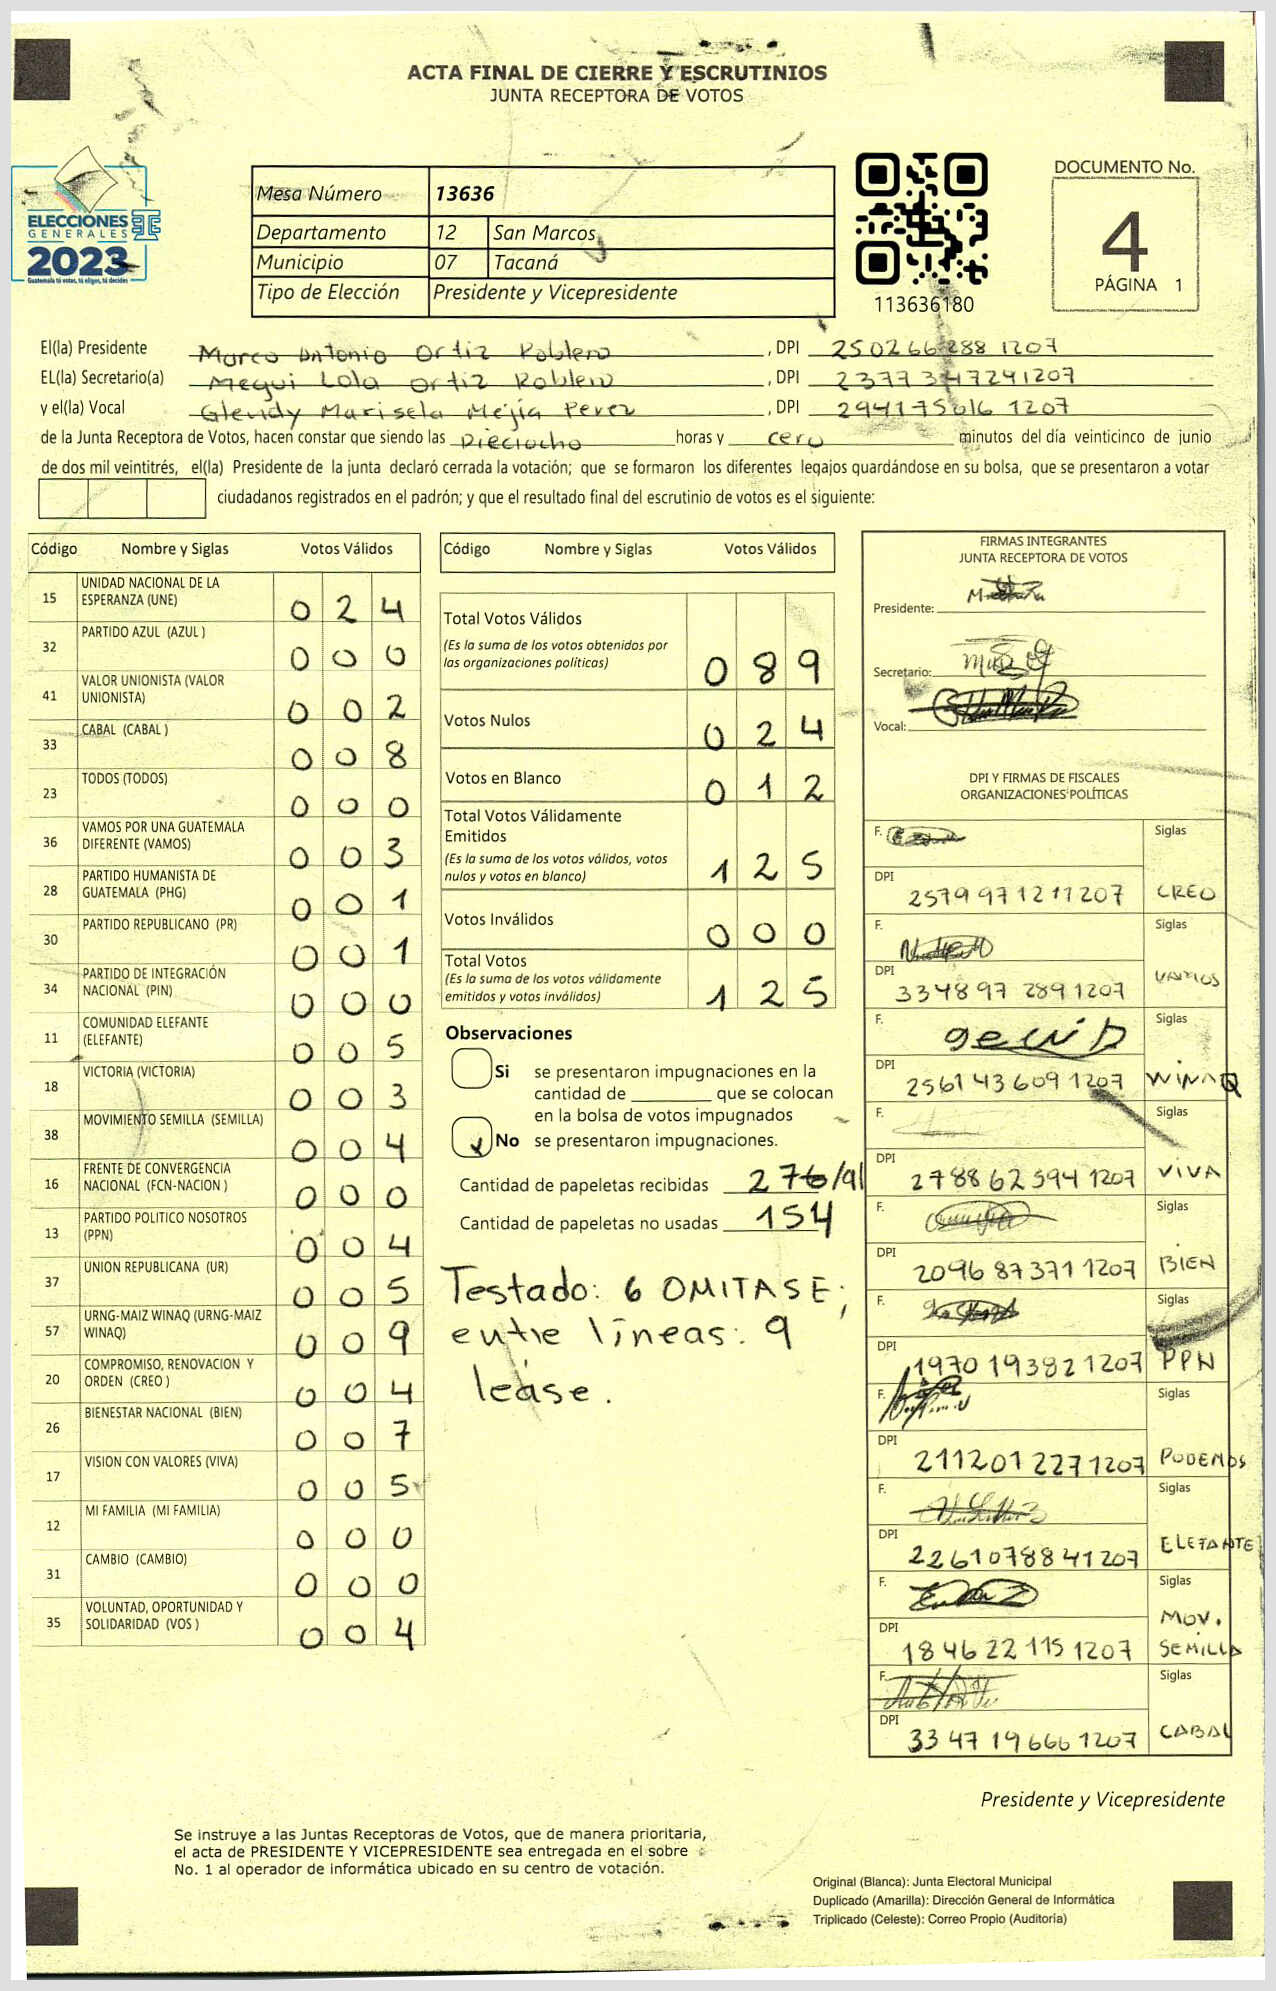 ACTA FINAL DE CIERRE Y ESCRUTINIOS
JUNTA RECEPTORA DE VOTOS
ELECCIONES
GENERALES
2023
Guatemala tú votas, tú eliges, tú decides
Mesa Número 13636
Departamento 12 San Marcos
Municipio 07 Tacaná
Tipo de Elección Presidente y Vicepresidente
113636180
DOCUMENTO No.
4
PÁGINA 1
El(la) Presidente Marco Antonio Ortiz Roblero , DPI 250266288 1207
EL(la) Secretario(a) Megui Lola Ortiz Roblero , DPI 2377347291207
y el(la) Vocal Glendy Marisela Mejía Perez , DPI 294175616 1207
de la Junta Receptora de Votos, hacen constar que siendo las Dieciocho horas y cero minutos del día veinticinco de junio
de dos mil veintitrés, el(la) Presidente de la junta declaró cerrada la votación; que se formaron los diferentes legajos quardándose en su bolsa, que se presentaron a votar
ciudadanos registrados en el padrón; y que el resultado final del escrutinio de votos es el siguiente:
Código Nombre y Siglas Votos Válidos
15 UNIDAD NACIONAL DE LA ESPERANZA (UNE) 0 2 4
32 PARTIDO AZUL (AZUL ) 0 0 0
41 VALOR UNIONISTA (VALOR UNIONISTA) 0 0 2
33 CABAL (CABAL ) 0 0 8
23 TODOS (TODOS) 0 0 0
36 VAMOS POR UNA GUATEMALA DIFERENTE (VAMOS) 0 0 3
28 PARTIDO HUMANISTA DE GUATEMALA (PHG) 0 0 1
30 PARTIDO REPUBLICANO (PR) 0 0 1
34 PARTIDO DE INTEGRACIÓN NACIONAL (PIN) 0 0 0
11 COMUNIDAD ELEFANTE (ELEFANTE) 0 0 5
18 VICTORIA (VICTORIA) 0 0 3
38 MOVIMIENTO SEMILLA (SEMILLA) 0 0 4
16 FRENTE DE CONVERGENCIA NACIONAL (FCN-NACION ) 0 0 0
13 PARTIDO POLITICO NOSOTROS (PPN) 0 0 4
37 UNION REPUBLICANA (UR) 0 0 5
57 URNG-MAIZ WINAQ (URNG-MAIZ WINAQ) 0 0 9
20 COMPROMISO, RENOVACION Y ORDEN (CREO ) 0 0 4
26 BIENESTAR NACIONAL (BIEN) 0 0 7
17 VISION CON VALORES (VIVA) 0 0 5
12 MI FAMILIA (MI FAMILIA) 0 0 0
31 CAMBIO (CAMBIO) 0 0 0
35 VOLUNTAD, OPORTUNIDAD Y SOLIDARIDAD (VOS ) 0 0 4
Código Nombre y Siglas Votos Válidos
Total Votos Válidos
(Es la suma de los votos obtenidos por
las organizaciones políticas) 0 8 9
Votos Nulos 0 2 4
Votos en Blanco 0 1 2
Total Votos Válidamente
Emitidos
(Es la suma de los votos válidos, votos
nulos y votos en blanco) 1 2 5
Votos Inválidos 0 0 0
Total Votos
(Es la suma de los votos válidamente
emitidos y votos inválidos) 1 2 5
Observaciones
Si se presentaron impugnaciones en la
cantidad de ________ que se colocan
en la bolsa de votos impugnados
No se presentaron impugnaciones.
Cantidad de papeletas recibidas 276/9
Cantidad de papeletas no usadas 154
Testado: 6 OMITASE;
entre líneas: 9
leáse.
FIRMAS INTEGRANTES
JUNTA RECEPTORA DE VOTOS
Presidente:
Secretario:
Vocal:
DPI Y FIRMAS DE FISCALES
ORGANIZACIONES POLÍTICAS
F. Siglas
DPI 2579971211207 CREO
F. Siglas
DPI 334897 2891207 VAMOS
F. Siglas
DPI 2561436091207 WINAQ
F. Siglas
DPI 2788625941207 VIVA
F. Siglas
DPI 2096873711207 BIEN
F. Siglas
DPI 1970193821207 PPN
F. Siglas
DPI 2112012271207 PODEMOS
F. Siglas
DPI 2261078841207 ELEFANTE
F. Siglas
DPI 1846221151207 MOV. SEMILLA
F. Siglas
DPI 3347196661207 CABAL
Presidente y Vicepresidente
Se instruye a las Juntas Receptoras de Votos, que de manera prioritaria,
el acta de PRESIDENTE Y VICEPRESIDENTE sea entregada en el sobre
No. 1 al operador de informática ubicado en su centro de votación.
Original (Blanca): Junta Electoral Municipal
Duplicado (Amarilla): Dirección General de Informática
Triplicado (Celeste): Correo Propio (Auditoría)